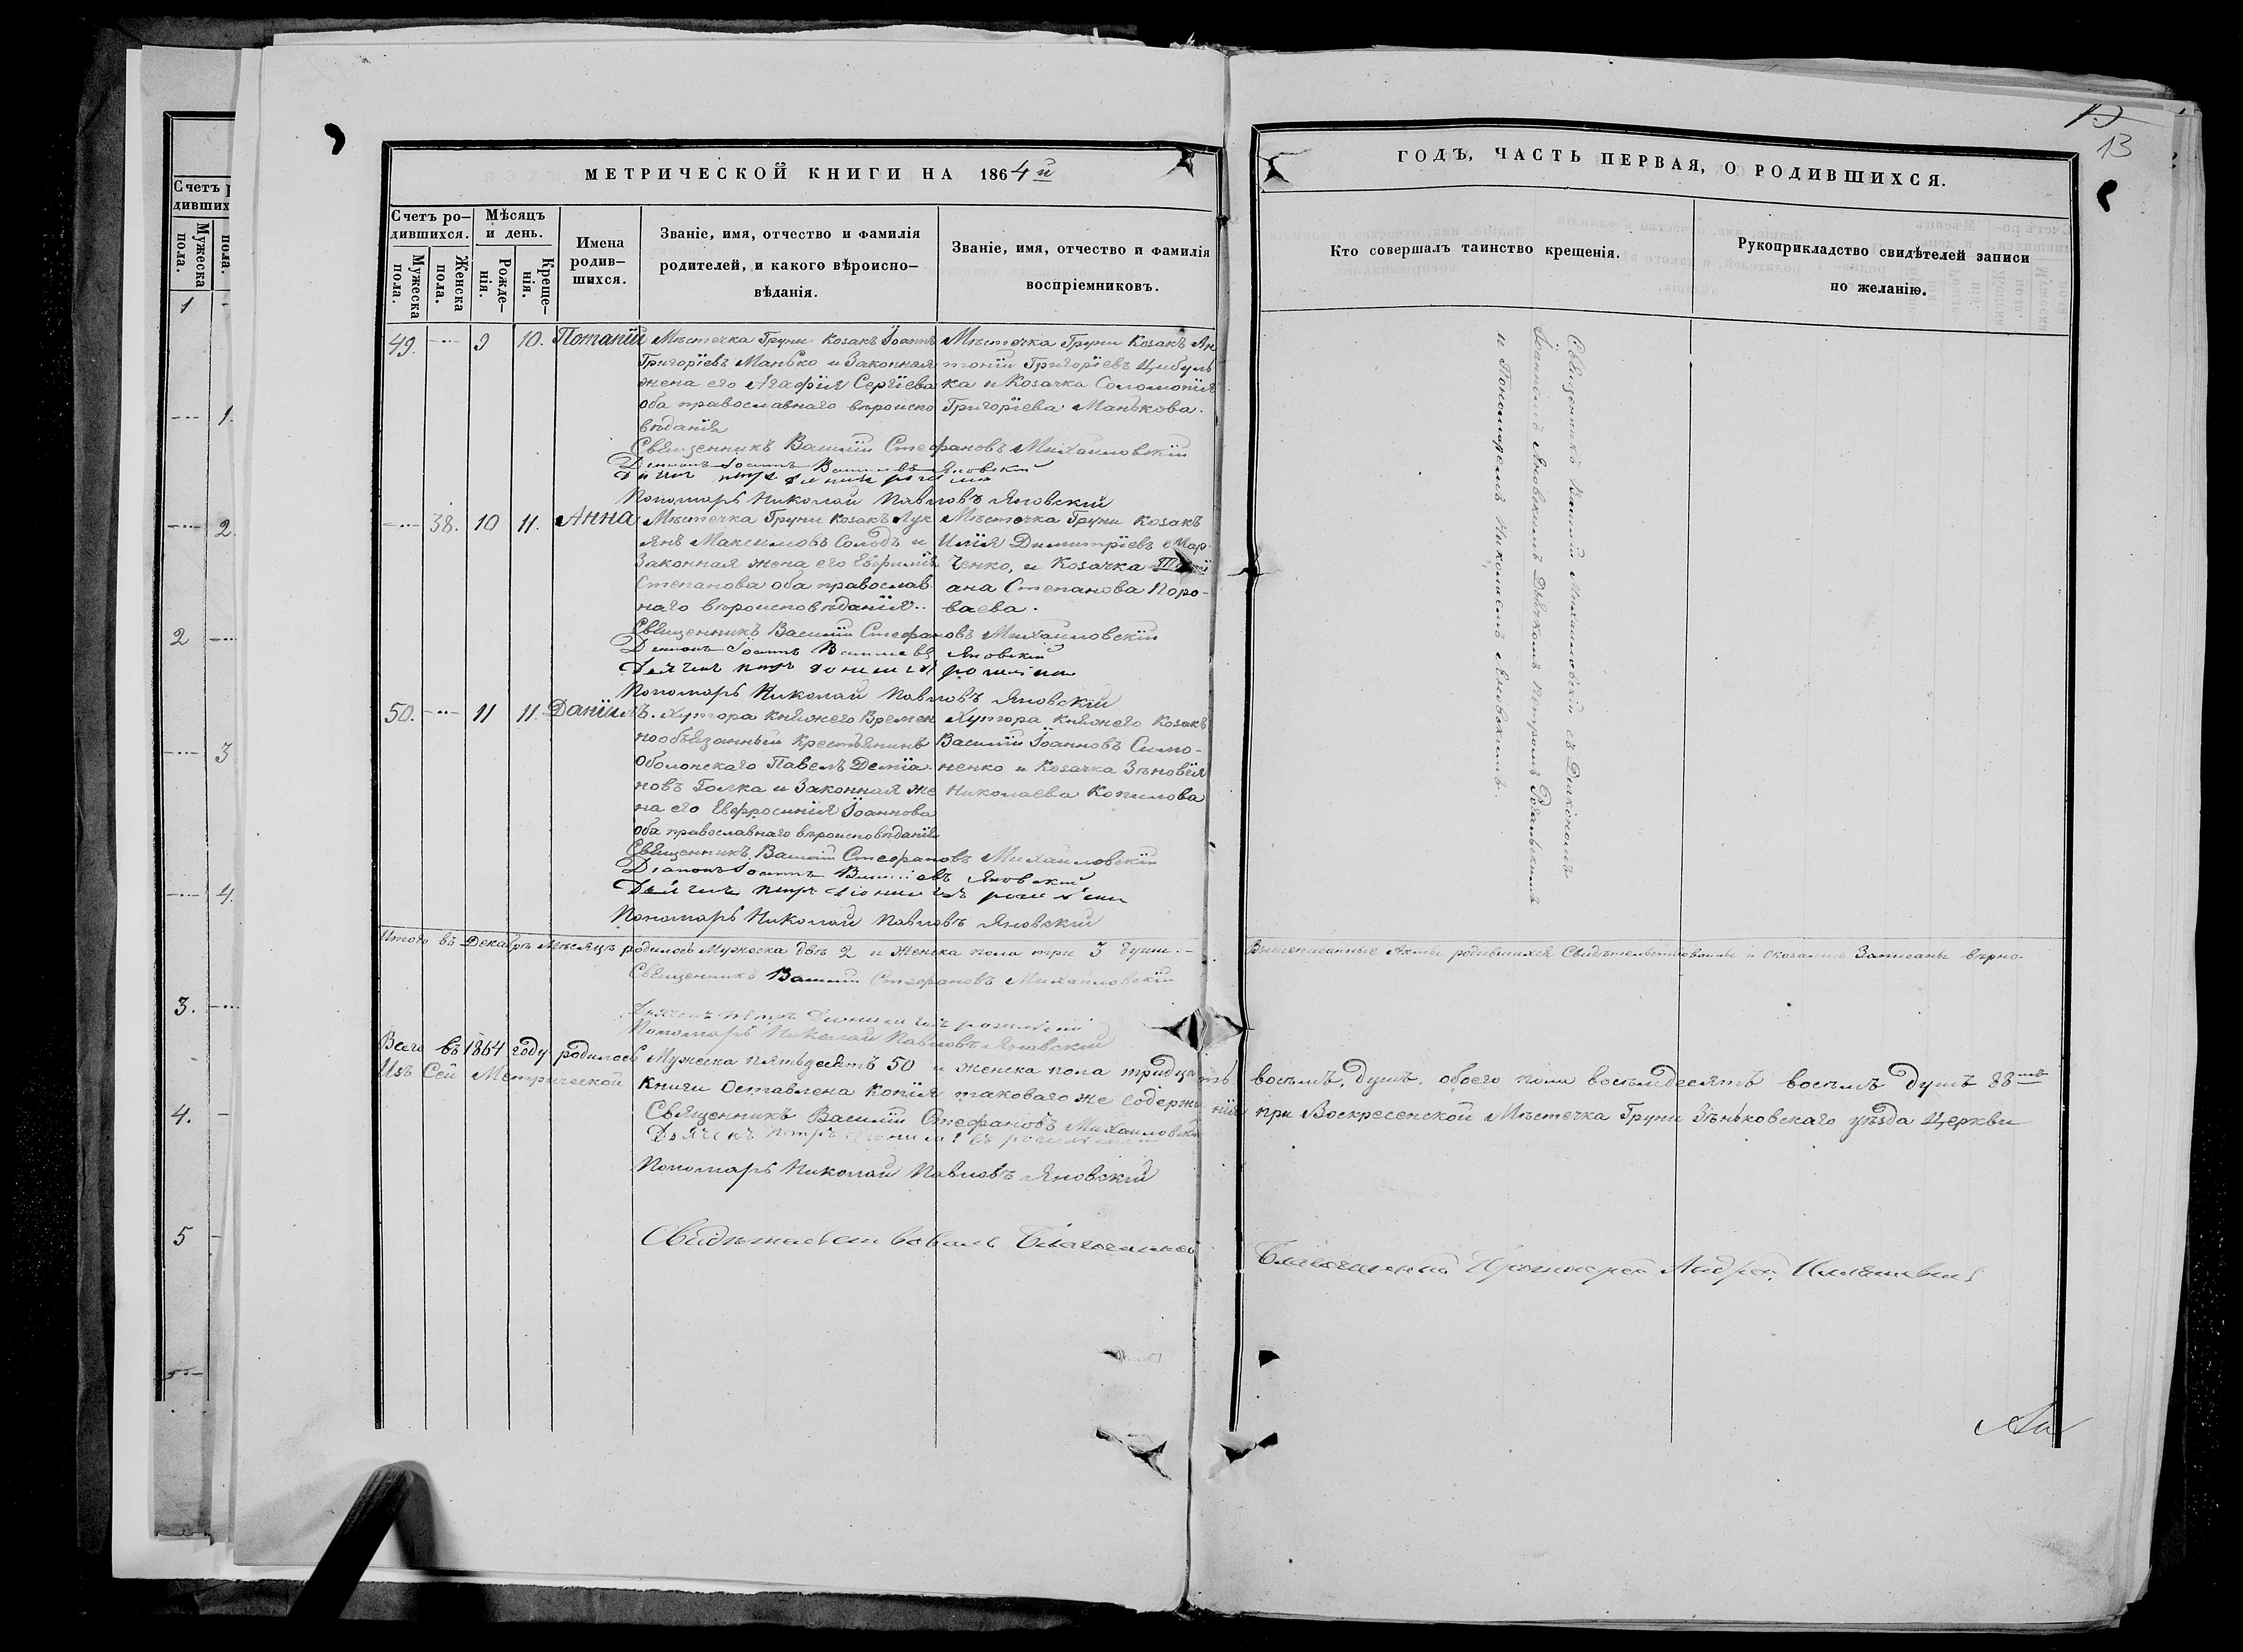 МЕТРИЧЕСКОЙ КНИГИ НА 1864й
Счетъ ро-
дившихся.
Мужеска пола.
Женска пола.
Мѣсяцъ
и день.
Рожде-
нія.
Креще-
нія.
Имена
родив-
шихся.
Званіе, имя, отчество и фамилія
родителей, и какого вѣроиспо-
вѣданія.
Званіе, имя, отчество и фамилія
воспріемниковъ.
49. 9 10. Потапій
Мѣстечка Груни Козакъ Іоаннъ
Григоріевъ Манько и Законная
жена его Агафія Сергіева
оба православнаго вѣроиспо
вѣданія
Мѣстечка Груни Козакъ Ан
тоній Григоріевъ Цибуль
ка и Козачка Соломонія
Григоріева Манькова.
Священникъ Василій Стефановъ Михайловскій
Діаконъ Іоаннъ Васильевъ Яновскій
Пономарь Николай Павловъ Яновскій
38. 10 11. Анна
Мѣстечка Груни Козакъ Лук
янъ Максимовъ Солодъ и
Законная жена его Евфимія
Степанова оба православ
наго вѣроисповѣданія
Мѣстечка Груни Козакъ
Илія Димитріевъ Мар-
ченко, и Козачка
ана Степанова Поро-
ваева.
Священникъ Василій Стефановъ Михайловскій
Діаконъ Іоаннъ Васильевъ Яновскій
Пономарь Николай Павловъ Яновскій
50. 11 11 Даніилъ.
Хутора Княжего Времен
нообязанный Крестьянинъ
Оболонскаго Павелъ Деміа
новъ Голка и Законная же
на его Евфросинія Іоаннова
оба православнаго вѣроисповѣданія
Хутора Княжего Козакъ
Василій Іоанновъ Симо-
ненко и Козачка Зѣновія
Николаева Копилова
Священникъ Василій Стефановъ Михайловскій
Діаконъ Іоаннъ Васильевъ Яновскій
Пономарь Николай Павловъ Яновскій
Итого въ Декабрѣ Мѣсяцѣ родилось Мужеска двѣ 2 и Женска пола три 3 души.
Священникъ Василій Стефановъ Михайловскій
Пономарь Николай Павловъ Яновскій
Всего въ 1864 году родилось Мужеска пятьдесятъ 50 и женска пола тридцать
Изъ Сей Метрической Книги Оставлена Копія таковаго же содержанія
Священникъ Василій Стефановъ Михайловскій
Пономарь Николай Павловъ Яновскій
Свидѣтельствовалъ Благочинный
13
ГОДЪ, ЧАСТЬ ПЕРВАЯ, О РОДИВШИХСЯ.
Кто совершалъ таинство крещенія.
Рукоприкладство свидѣтелей записи
по желанію.
Священникъ Василій Михайловскій съ Діакономъ
Іоанномъ Яновскимъ Дьячкомъ Петромъ
и Пономаремъ Николаемъ Яновскимъ.
Вышеписанные Акты родившихся Свидѣтельствованы и оказались Записаны вѣрно.
восѣмъ, душъ, обоего пола восемдесятъ восемъ душъ 88
при Воскресенской Мѣстечка Груни Зѣньковскаго уѣзда Церкви
Благочинный Протоіерей Андрей
Счетъ р
дивших
Мужеска пола.
пола.
1
1.
2.
2
3
4.
3.
4.
5
5